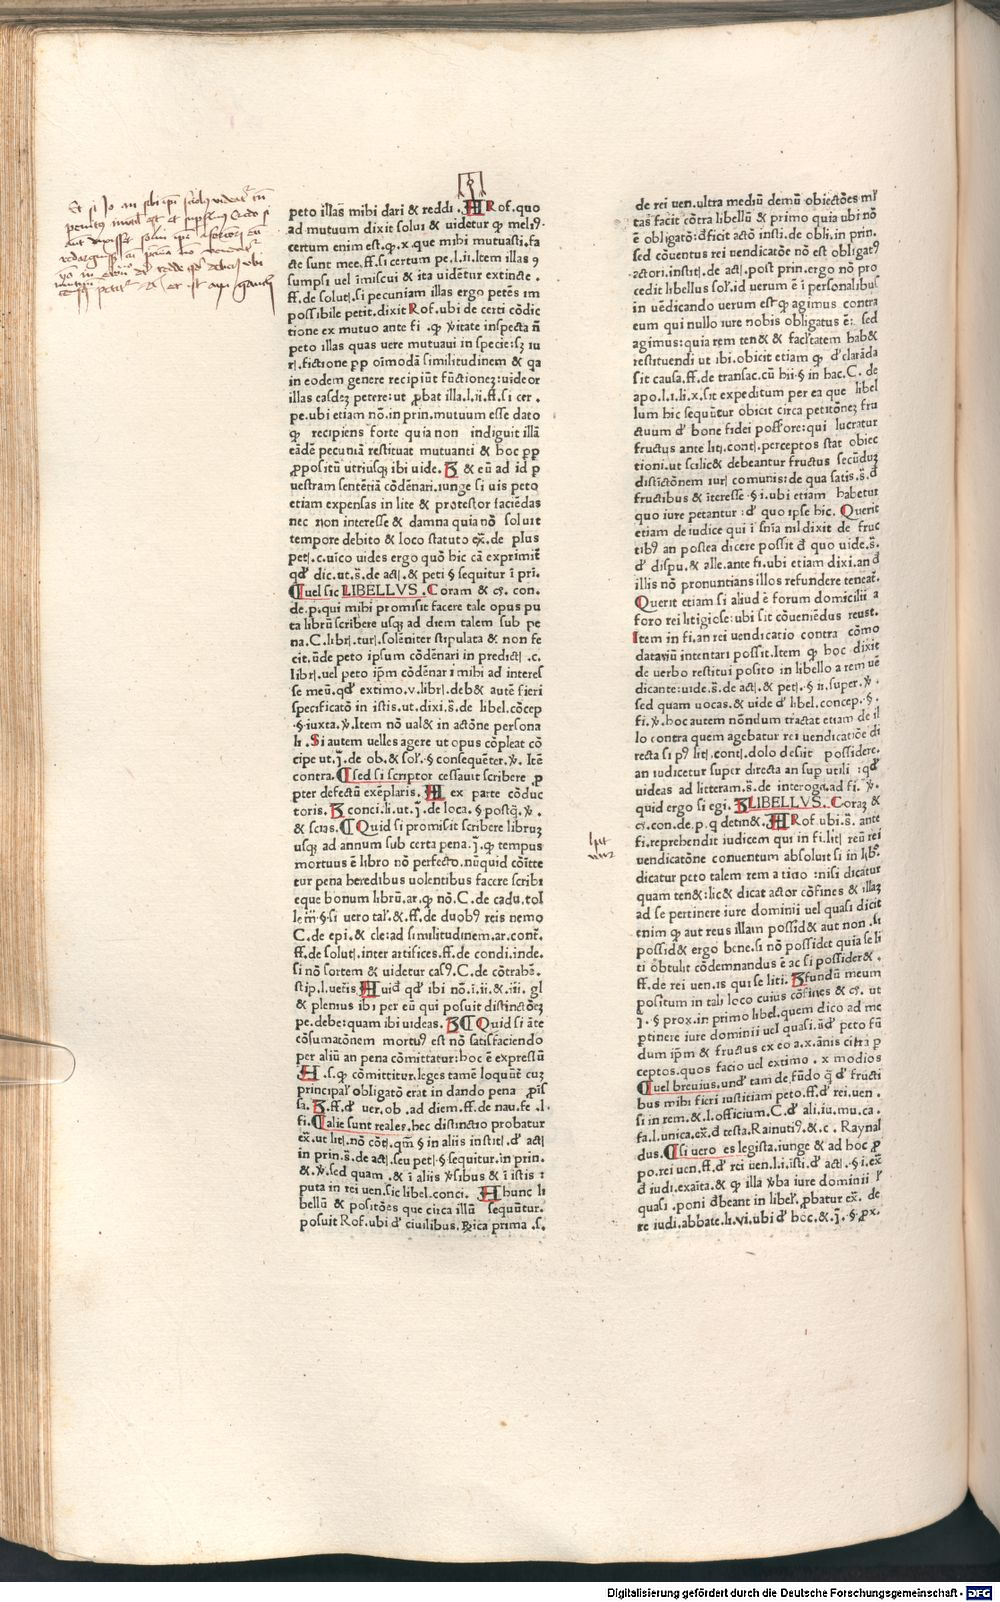 peto illas mihi dari & reddi . A Rof. quo
ad mutuum dixit solui & uidetur ꝙ meli9.
certum enim est.ꝙ.x.que mihi mutuasti.fa
cte sunt mee.ff.si certum pe.l.ii.Item illas 9
sumpsi uel imiscui & ita uidētur extincte .
ff.de solut|.si pecuniam illas ergo petēs im
possibile petit.dixit Rof.ubi de certi cōdic
tione ex mutuo ante fi .ꝙ v̄itate inspecta n̄
peto illas quas uere mutuaui in specie:sȝ iu
r|.fictione ꝓp oīmodā similitudinem & qa
in eodem genere recipiūt fūctioneȝ:uideor
illas easdeȝ petere:ut ꝓbat illa.l.ii.ff.si cer .
pe.ubi etiam nō.in prin.mutuum esse dato
ꝙ recipiens forte quia non indiguit illā
eādē pecuniā restituat mutuanti & hoc ꝓp
ꝓpositū utriusqȝ ibi uide. B & eū ad id p
uestram sentētiā cōdēnari.iunge si uis peto
etiam expensas in lite & protestor faciēdas
nec non interesse & damna quia nō soluit
tempore debito & loco statuto ex̄.de plus
pet|.c.uico uides ergo quō hic cā exprimit̄
qd' dic.ut.s̄.de act|.& peti § sequitur ī pri.
¶uel sic LIBELLVS . Coram & cȝ. con.
de.p.qui mihi promisit facere tale opus pu
ta librū scribere usqȝ ad diem talem sub pe
na.C.libr|.tur|.solēniter stipulata & non fe
cit.ūde peto ipsum cōdēnari in predict| .c.
libr|.uel peto ip̄m cōdēnari mihi ad interes
se meū.qd' extimo.v.libr|.deb& autē fieri
specificatō in istis.ut.dixi.s̄.de libel.cōcep
.§.iuxta.v̄.Item nō ual& in actōne persona
li .Si autem uelles agere ut opus cōpleat cō
cipe ut.j̄.de ob.& sol'.§ consequēter.v̄. Itē
contra.¶sed si scriptor cessauit scribere ꝓ
pter defectū exēplaris. A ex parte cōduc
toris. B conci.li.ut.j̄.de loca.§ postq̄.v̄ .
& scias. ¶ Quid si promisit scribere libruȝ
usqȝ ad annum sub certa pena.j̄.ꝙ tempus
mortuus ē libro nō perfecto.nūquid cōitte
tur pena heredibus uolentibus facere scribi
eque bonum librū.ar.ꝙ nō.C.de cadu.tol
le iii §.si uero tal'.& .ff.de duob9 reis nemo
C.de epi.& cle:ad similitudinem.ar.cont̄.
ff.de solut|.inter artifices.ff.de condi.inde.
si nō sortem & uidetur cas9.C.de cōtrahē.
stip.l.uet̄is. A uid qd' ibi nō.i.ii.& .iii. gl
& plenius ibi per eū qui posuit distinctōeȝ
pe.debe:quam ibi uideas. B ¶ Quid si āte
cōsumatōnem mortu9 est nō satisfaciendo
per aliū an pena cōmittatur:hoc ē expressū
A .s.ꝙ cōmittitur.leges tamē loquūt̄ cuȝ
principal' obligatō erat in dando pena p̄is
sa. B.ff.d' uer.ob .ad diem.ff.de nau.fe .l.
fi. ¶alie sunt reales.hec distinctio probatur
ex̄.ut lit|.nō cōt|.qm̄ § in aliis instit|.d' act|
in prin.s̄.de act|.seu pet| § sequitur.in prin.
& .v̄.sed quam .& ī aliis v̄sibus & ī istis :
puta in rei uen.sic libel.conci. A hunc li
bellū & positōes que circa illū sequūtur.
posuit Rof.ubi d' ciuilibus.Rica prima .s.
de rei uen.ultra mediū demū obiectōes ml'
tas facit cōtra libellū & primo quia ubi nō
ē obligatō:d'ficit actō insti.de obli.in prin.
sed cōuentus rei uendicatōe nō est obligat9
.actori.instit|.de act|.post prin.ergo nō pro
cedit libellus sol'.id uerum ē ī personalibus
in uēdicando uerum est ꝙ agimus contra
eum qui nullo iure nobis obligatus ē: sed
agimus:quia rem ten& & facl'tatem hab&
restituendi ut ibi.obicit etiam ꝙ d'clarāda
sit causa.ff.de transac.cū hii.§ in hac.C. de
apo.l.i.li.x.sit expeditum per ea que libel
lum hic sequūtur obicit circa petitōneȝ fru
ctuum d' bone fidei possore:qui lucratur
fructus ante lit|.cont|.perceptos stat obiec
tioni.ut scilic& debeantur fructus secūduȝ
distictōnem iur| comunis:de qua satis.s̄.d'
fructibus & īteresse .§ i.ubi etiam habetur
quo iure petantur :d' quo ipse hic. Querit
etiam de iudice qui ī sn̄ia nil dixit de fruc
tib9 an postea dicere possit d' quo uide.s̄.
d' dispu.& alle.ante fi.ubi etiam dixi.an d'
illis nō pronuntians illos refundere teneat̄.
Querit etiam si aliud ē forum domicilii a
foro rei litigiose:ubi sit cōueniēdus reust.
Item in fi.an rei uendicatio contra cōmo
datariū intentari possit.Item ꝙ hoc dixit
de uerbo restitui posito in libello a rem uē
dicante:uide.s̄.de act|.& pet|. § ii.super.v̄.
sed quam uocas.& uide d' libel.concep.§ .
fi.v̄.hoc autem nōndum tractat etiam de il
lo contra quem agebatur rei uendicatiōe di
recta si p9 lit|.cont|.dolo desiit possidere.
an iudicetur super directa an sup utili :qd'
uideas ad litteram.s̄.de interoga.ad fi. v̄.
quid ergo si egi. B LIBELLVS. Coraȝ &
cȝ.con.de.p.q detin&. A Rof.ubi.s̄. ante
fi.reprehendit iudicem qui in fi.lit| reū rei
uendicatōne conuentum absoluit si in lib9.
dicatur peto talem rem a ticio :nisi dicatur
quam ten&:lic& dicat actor cōfines & illaȝ
ad se pertinere iure dominii uel quasi dicit
enim ꝙ aut reus illam possid& aut non .si
possid& ergo bene.si nō possidet quia se li
ti obtulit cōdemnandus ē ac si possider& .
ff.de rei uen.is qui se liti. B fundū meum
positum in tali loco cuius cōfines & cȝ. ut
j̄. § prox.in primo libel.quem dico ad me
ptinere iure dominii uel quasi.ūd' peto fū
dum ip̄m & fructus ex eo a.x.ānis citra p
ceptos.quos facio uel extimo . x modios
¶uel breuius.und' tam de fūdo q̄ d' fructi
bus mihi fieri iustitiam peto.ff.d' rei.uen .
si in rem.& .l.officium.C.d' ali.iu.mu.ca .
fa.l.unica.ex̄.d' testa.Rainuti9.& .c . Raynal
dus. ¶si uero es legista.iunge & ad hoc ꝓ
po.rei uen.ff.d' rei uen.l.i.isti.d' act| .§ i.ex̄
d' iudi.exaīta.& ꝙ illa v̄ba iure dominii l'
quasi .poni d'beant in libel'.ꝓbatur ex̄. de
re iudi.abbate.li.vi.ubi d' hoc.& .j̄. § .ꝓx.
Digitalisierung gefördert durch die Deutsche Forschungsgemeinschaft - DFG